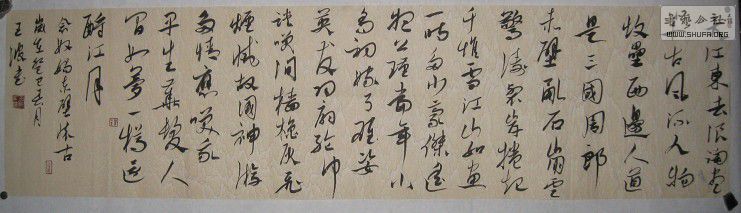 江東去浪淘盡
古風流人物
故壘西邊人道
是三國周郎
赤壁亂石崩雲
驚濤裂岸捲起
千堆雪江山如畫
一時多少豪傑遙
想公瑾當年小
喬初嫁了雄姿
英發羽扇綸巾
談笑間檣櫓灰飛
煙滅故國神遊
多情應笑我
早生華髮人
間如夢一樽還
酹江月
念奴嬌赤壁懷古
歲在癸巳春月
王
WWW.SHUFA.ORG